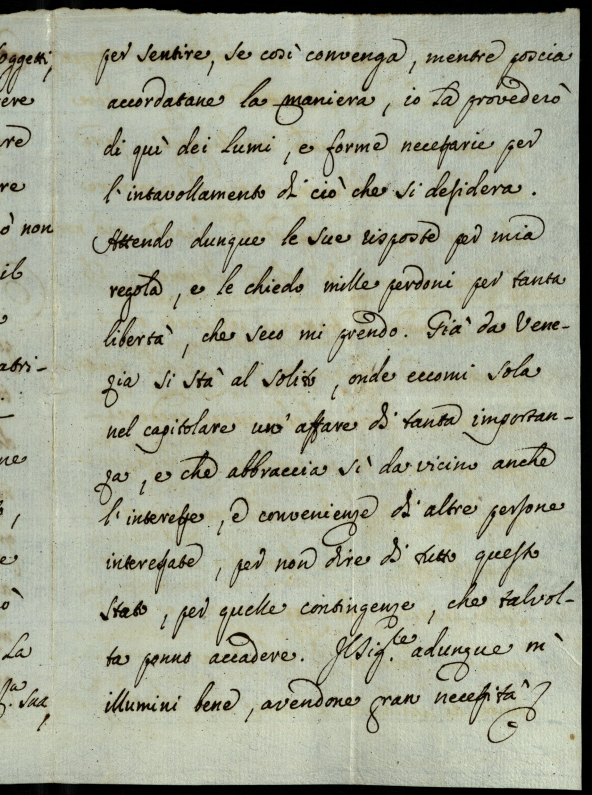 oggetti,
ere
re
ò non
il
atri-
ne
,
e
ò
La
Sua,
per sentire, se così convenga, mentre poscia
accordatane la maniera, io La provederò
di quì dei lumi, e forme necessarie per
l'intavollamento di ciò che si desidera.
Attendo dunque le sue risposte per mia
regola, e le chiedo mille perdoni per tanta
libertà, che seco mi prendo. Già da Vene-
zia si stà al solito, onde eccomi sola
nel capitolare un'affare di tanta importan-
za, e che abbraccia sì da vicino anche
l'interesse, e convenienze di altre persone
interessate, per non dire di tutto questo
stato, per quelle contingenze, che talvol-
ta ponno accadere. Il Sig.le adunque m'
illumini bene, avendone gran necessità